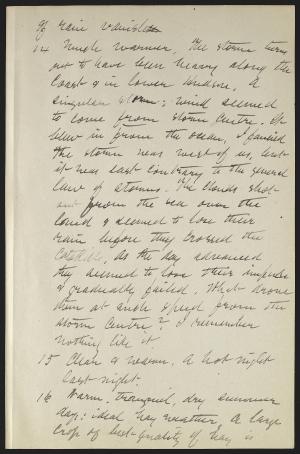 of rain vanished
14 Much warmer, the storm turns
out to have been heavy along the
Coast & in lower Hudson. A
singular storm: wind seemed
to come from storm centre. It
blew in from the ocean, I fancied
the storm was west of us, but
it was east contrary to the general
law of storms. The clouds shot
out from the sea over the
land & seemed to lose their
rain before they crossed the
Catskills. As the day advanced
they seemed to lose their impulse
& gradually failed. What drove
them at such speed from the
storm centre? I remember
nothing like it
15 Clear & warm. A hot night
last night.
16 Warm, tranquil, dry summer
day: ideal hay weather. A large
crop of best-quality of hay is